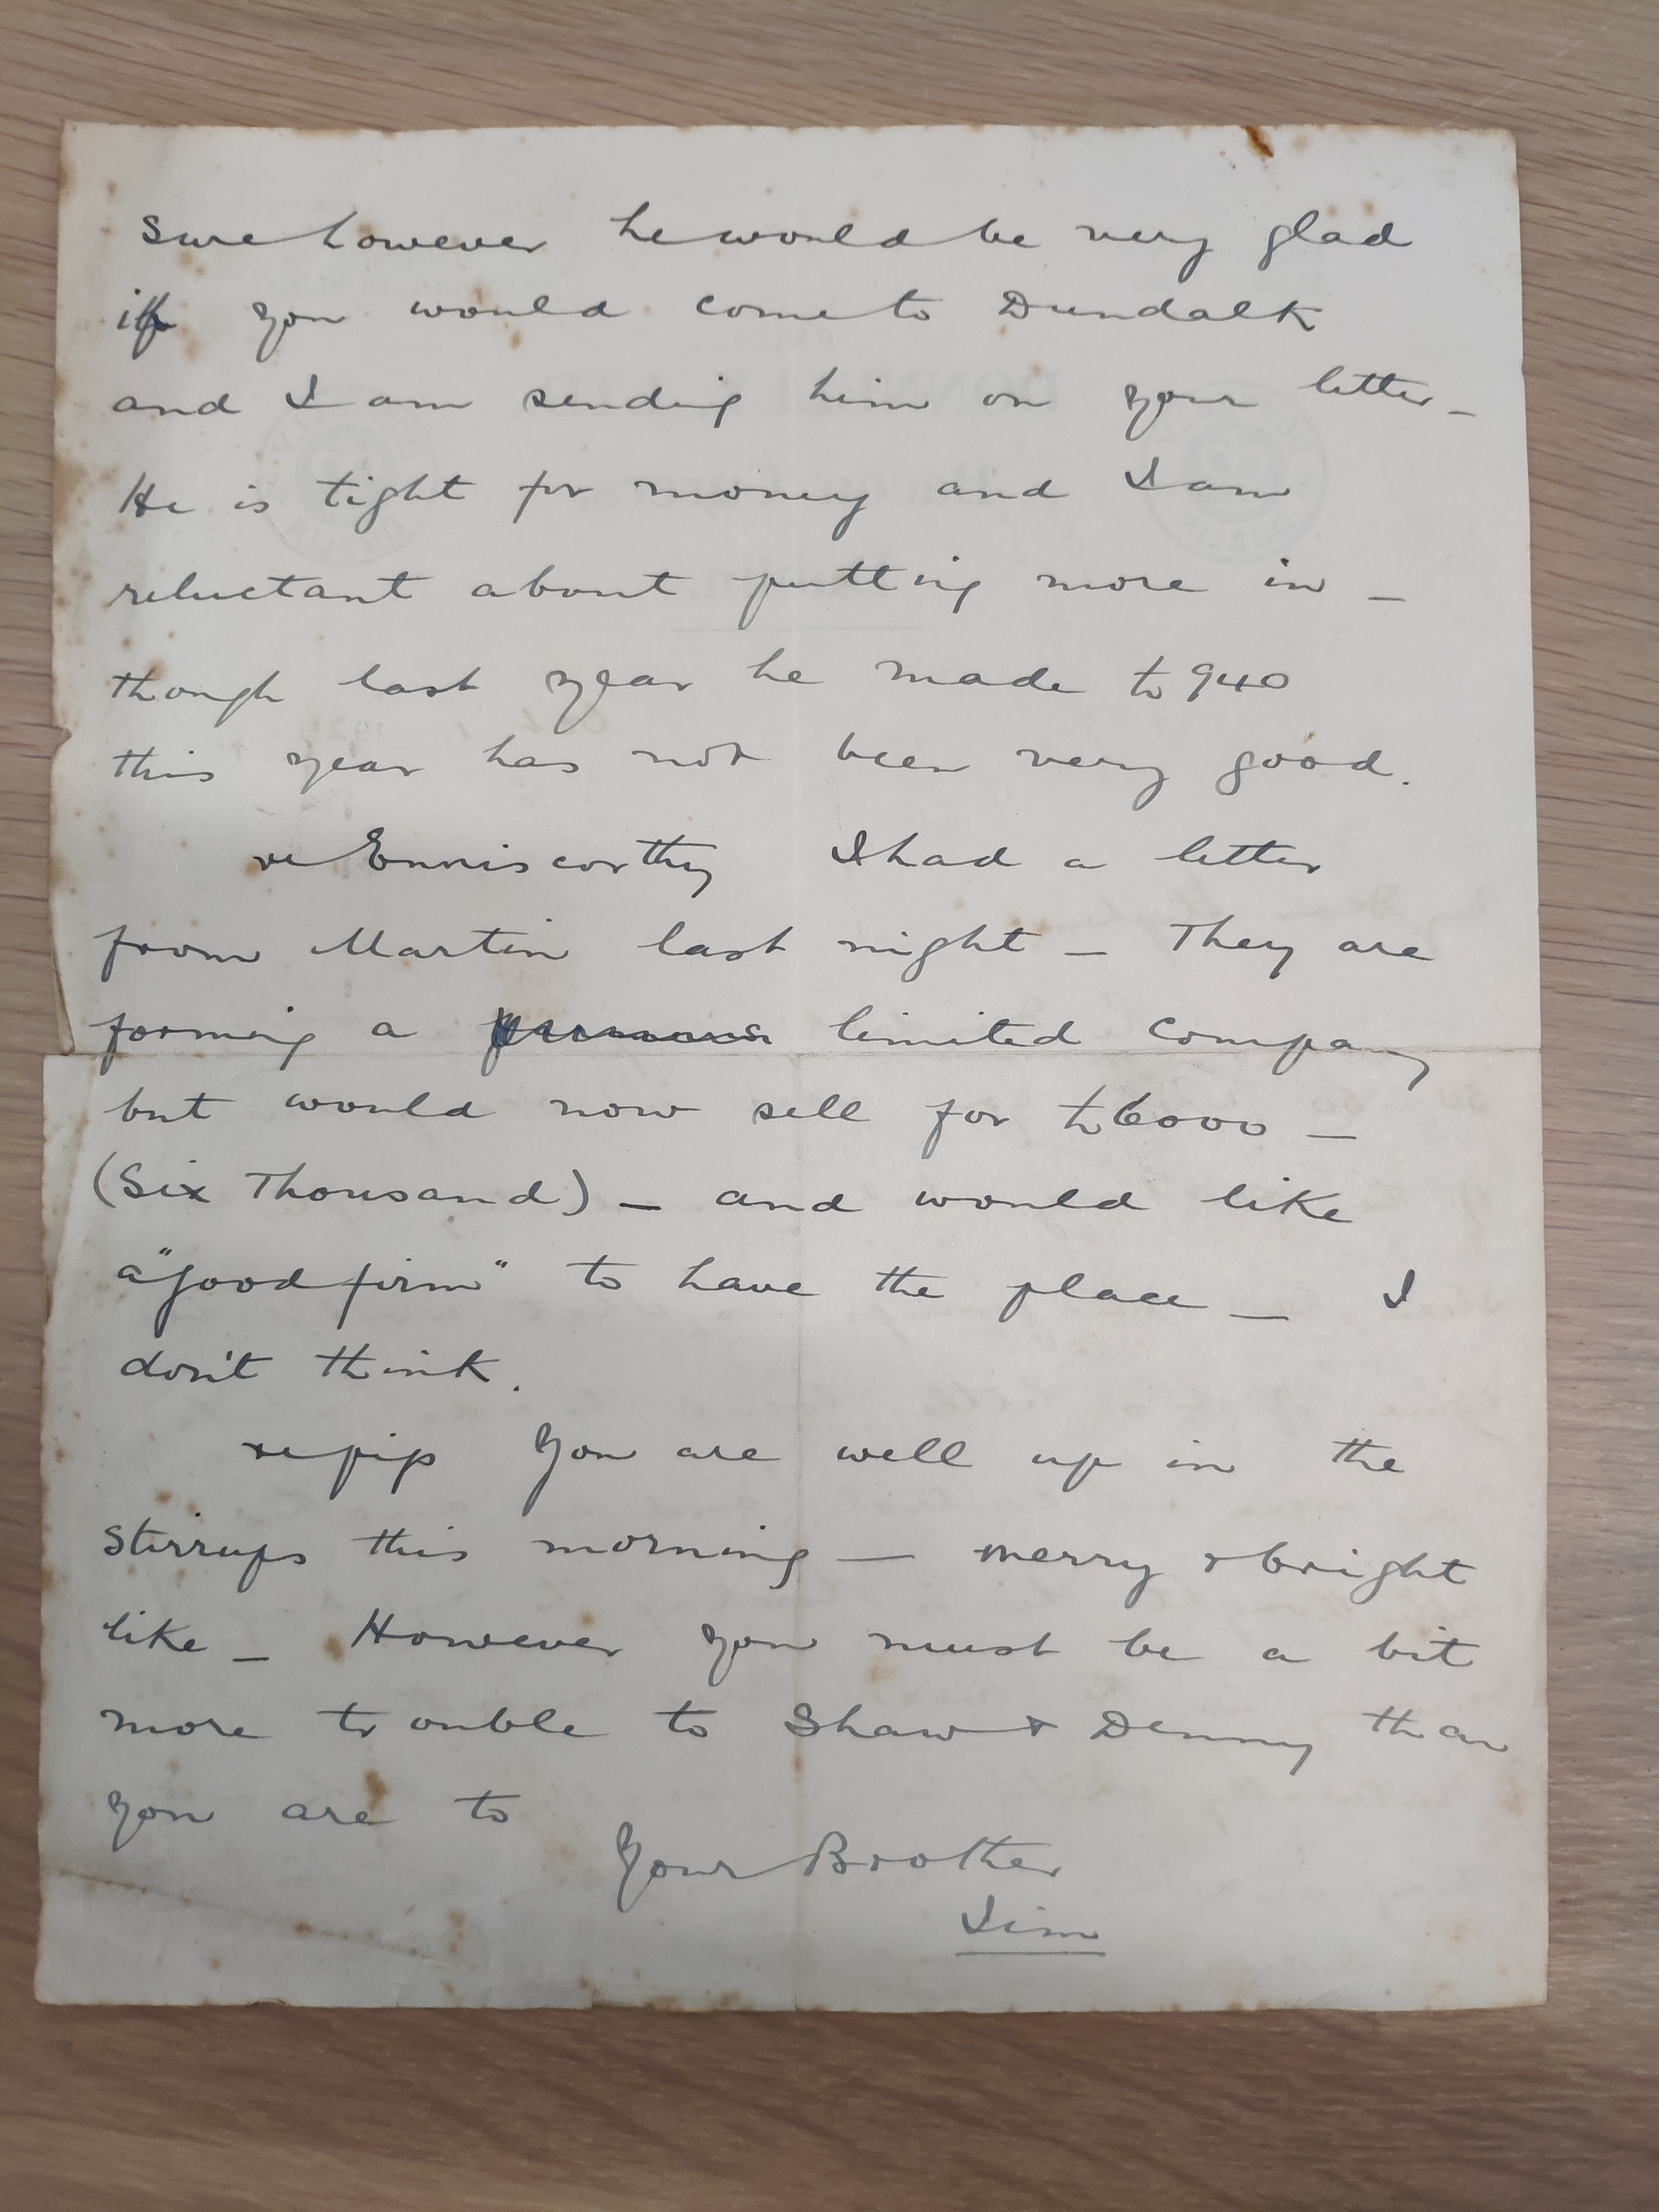 sure however he would be very glad
if you would come to Dundalk
and I am sending him on your letter –
He is tight for money and I am
reluctant about putting more in –
though last year he made £940
this year has not been very good.
re Enniscorthy I had a letter
from Martin last night – They are
forming a limited company
but would now sell for £6000 –
(Six Thousand) – and would like
a "good firm" to have the place – I
don't think.
re pip You are well up in the
stirrups this morning – merry & bright
like – However you must be a bit
more trouble to Shaw & Denny than
you are to
Your Brother
Jim